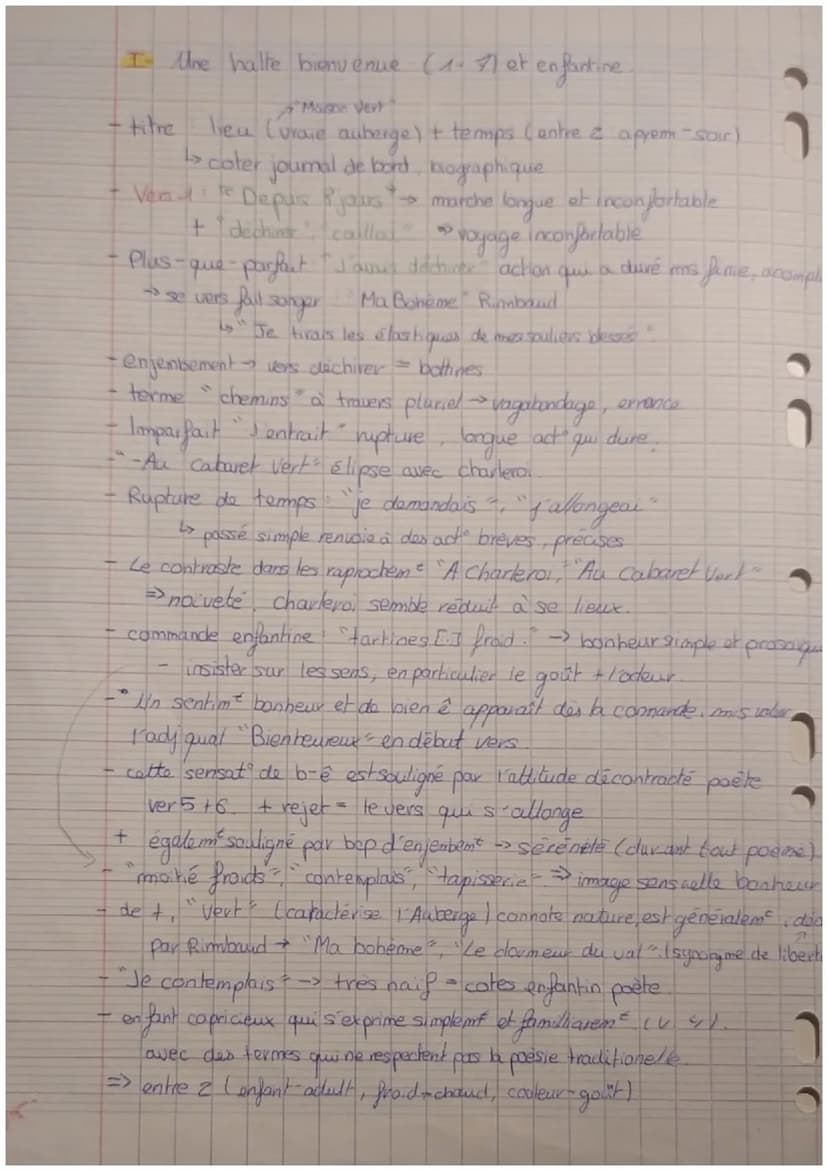 I- Une halte bienvenue (1-7) et enfantine
"Maison Vert"
- titre : lieu (vraie auberge) + temps (entre 2 aprem-soir)
↳ coter journal de bord, biographique
- Vers 1 : "Depuis 8 jours" → marche longue et inconfortable
+ "déchirer", "caillou" ⇒ voyage inconfortable
- Plus-que-parfait "J'avais déchirer" action qui a duré mais finie,
→ se vers fait songer "Ma Bohème" Rimbaud
↳ "Je tirais les élastiques de mes souliers blessés".
- enjembement → vers déchirer = bottines
- terme "chemins" à travers pluriel → vagabondage, errance
- Imparfait "J'entrait" rupture, longue act° qui dure.
"-Au Cabaret Vert" élipse avec charleroi.
- Rupture de temps : "je demandais", "j'allongeai"
↳ passé simple renvoie à des act° brèves, précises
- Le contraste dans les raprochemt "A Charleroi," "Au Cabaret Vert"
⇒ naïveté, charleroi semble réduit à se lieux.
- commande enfantine : "tartines [..] froid." → bonheur simple et
- insister sur les sens, en particulier le goût + l'odeur.
-" Un sentimt bonheur et de bien ê apparaît dès la commande, mis
l'adj qual "Bienheureux" en début vers
- cette sensat° de b-ê est souligné par l'attitude décontracté poète
ver 5+6. + rejet = le vers qui s'allonge
+ égalemt souligné par bcp d'enjenbemt → sérénété (durant tout poème)
- "moitié froids", "contemplais", "tapisserie" ⇒ image sensuelle bonheur
- de +, "vert" (caractérise l'Auberge) connote nature, est généralemt
par Rimbaud → "Ma bohème", "Le dormeur du val". (synonyme de
- "Je contemplais" → très naïf = cotes enfantin poète
- enfant capricieux qui s'exprime simplemt et familiairemt (v 4).
avec des termes qui ne respectent pas la poésie traditionelle
⇒ entre 2 (enfant-adult, froid-chaud, couleur-goût)